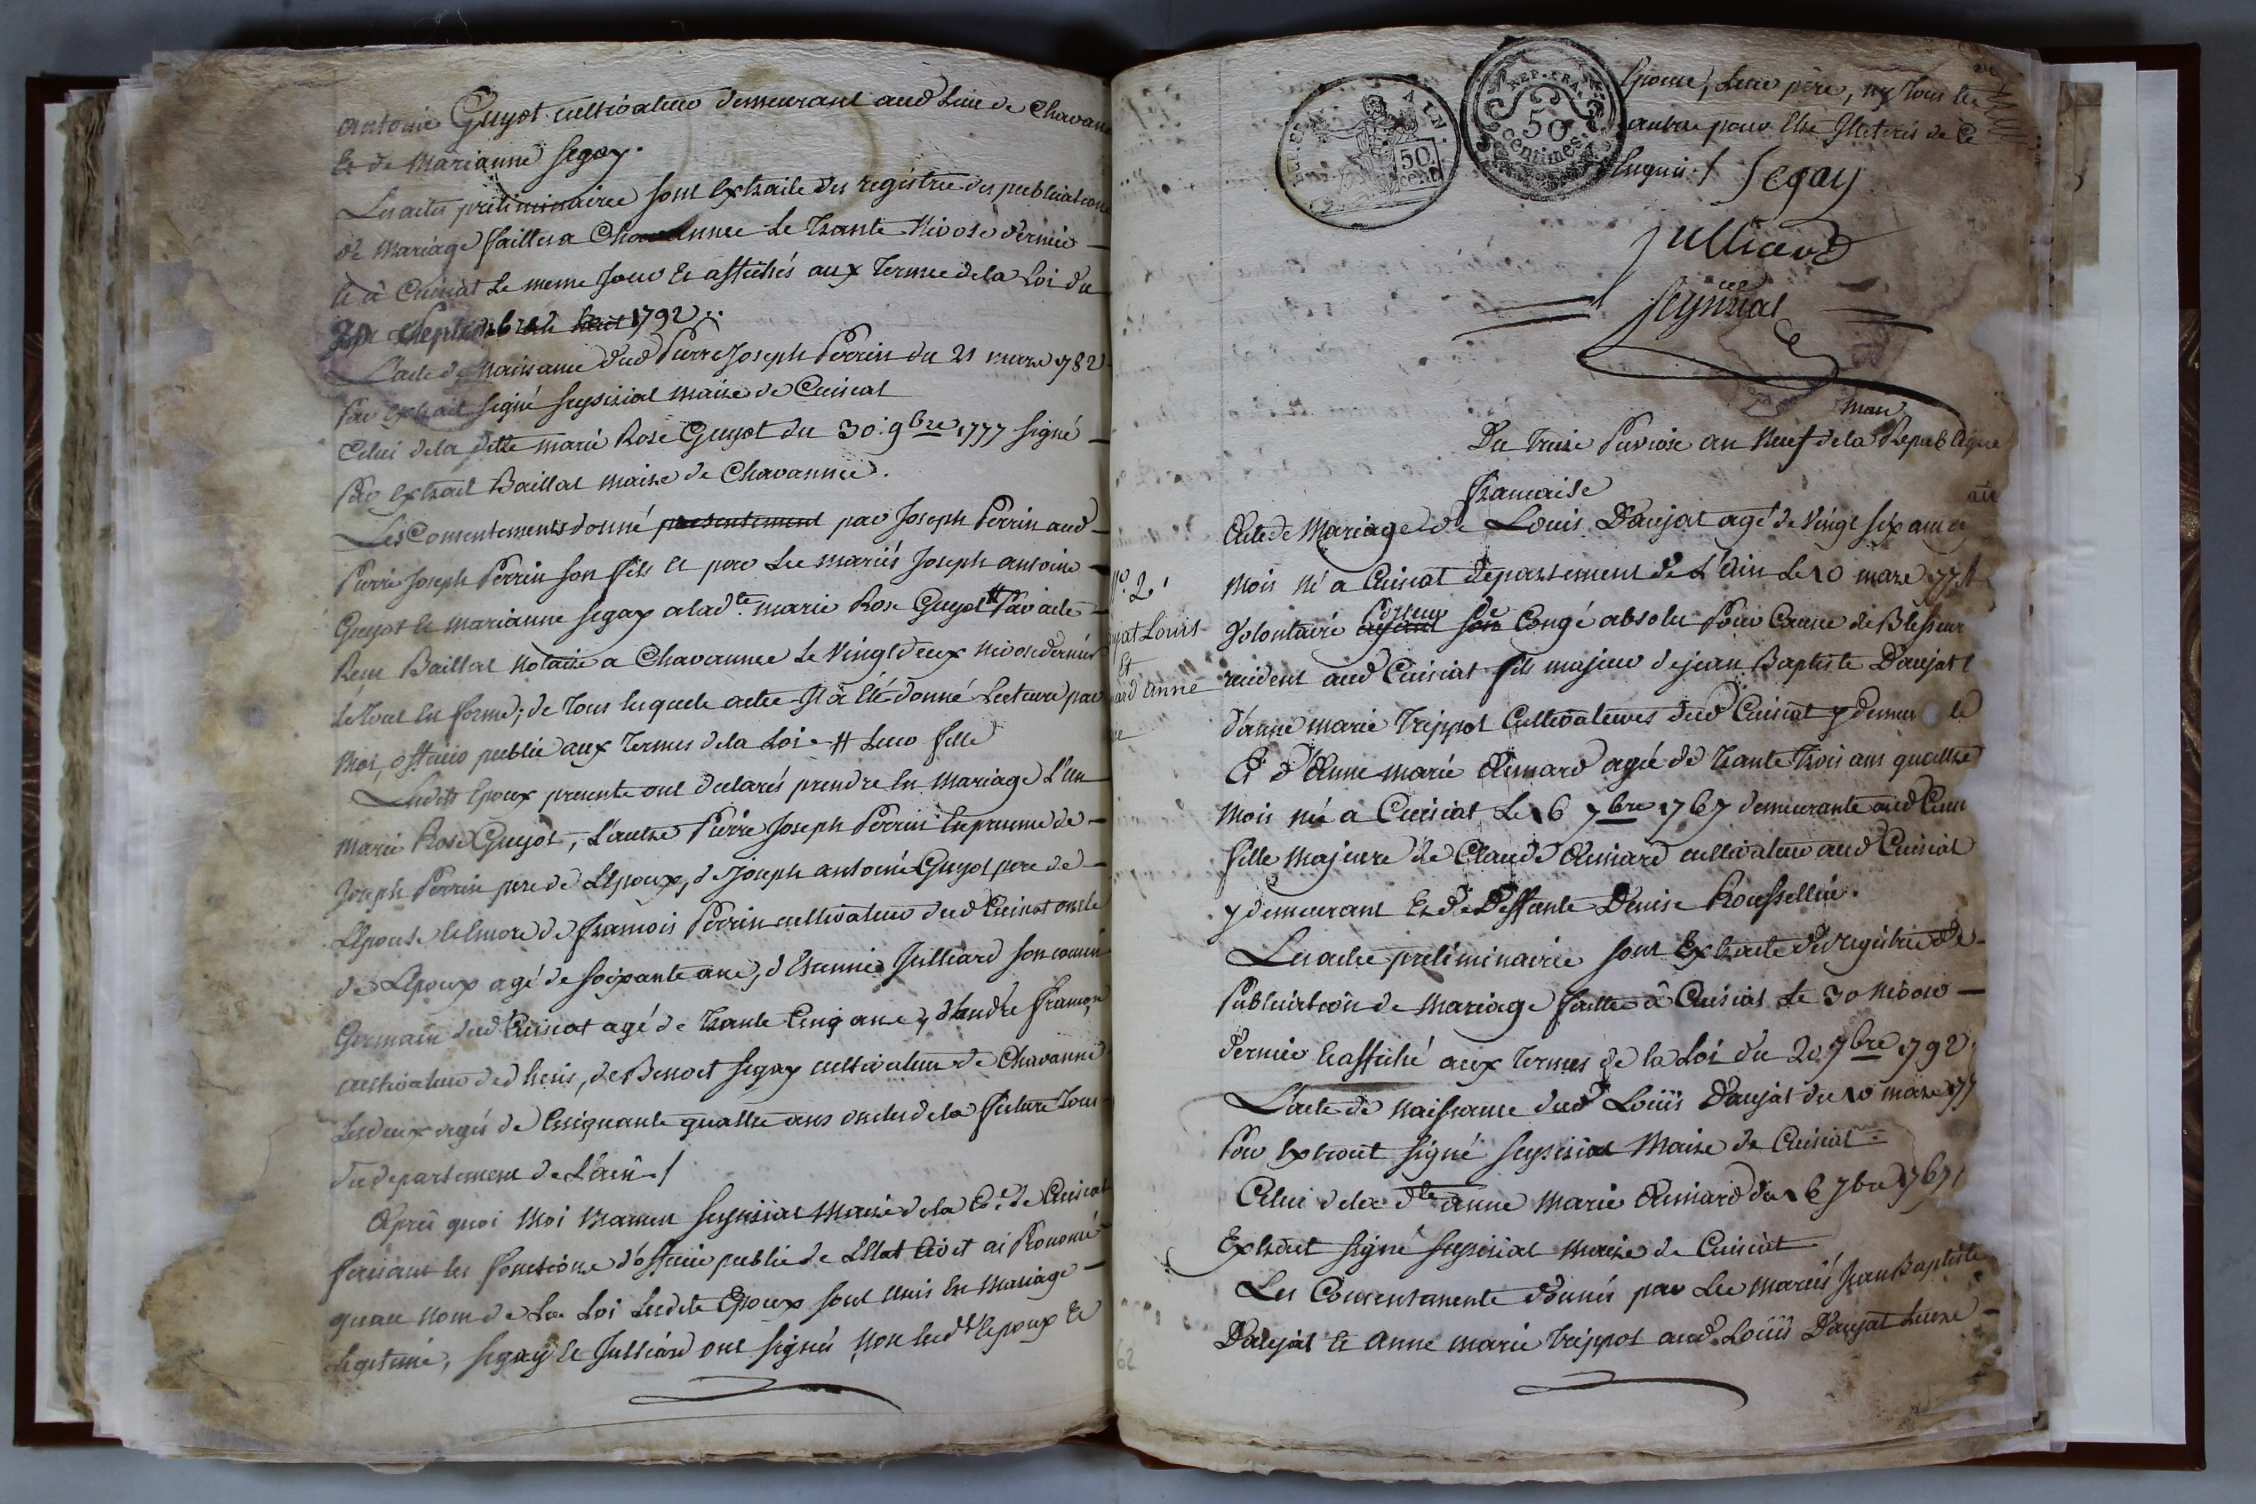 antoine Guyot cultivateur demeurant aud Lieu de Chavan
Et de Marianne Segay.
Les actes préliminaires sont Extraits des registres des publications
de Mariage faittes a Chavannes Le Trante Nivose dernier
Et à Cuisiat Le meme Jour Et affichés aux Termes de la Loi du
20 Septembre 1792
L'acte de Naissance dud Pierre Joseph Perrin du 21 mars 1782
Par Extrait signé Seyssiat Maire de Cuisiat
Celui de la ditte marie Rose Guyot du 30. 9bre 1777 signé
Par Extrait Baillat Maire de Chavannes.
Les Consentements donné presentement par Joseph Perrin aud
Pierre Joseph Perrin son fils Et par Les mariés Joseph antoine
Guyot Et marianne Segay a lad.te marie Rose Guyot # Par acte
Reçu Baillat Notaire a Chavannes Le Vingt deux nivose dernier
Le Tout En forme; de Tous lesquels actes Il à Eté donné Lecture par
Moi, officier public aux Termes de la Loi # Leur fille
Lesdits Epoux presents ont declarés prendre En Mariage L'un
Marie Rose Guyot, L'autre Pierre Joseph Perrin En presence de
Joseph Perrin pere de L'Epoux, de Joseph antoine Guyot pere de
L'Epouse Et Encore de francois Perrin cultivateur dud Cuisiat oncle
de L'Epoux agé de soixante ans, d'Etienne Julliard son cousin
Germain dud Cuisiat agé de Trante Cinq ans, d'andré francon
cultivateur de, de Benoit Segay cultivateur de Chavanne
Les deux agés de Cinquante quattre ans oncles de la future Tous
du departement de L'ain /
Après quoi Moi Seyssiat Maire de la C.e de Cuisiat
faisant les fonctions d'officier public de L'Etat Civil ai Prononcé
qu'au Nom de La Loi Lesdits Epoux sont unis En Mariage
Legitime, Segay Et Julliard ont signés Non lesd.t Epoux Et
REP. FRA.
50
centimes.
AIN.
50
cent.
Epouse, Leur père, ny Tous les
autres pour Etre Illeterés de Ce
Enquis / Segay
Julliard
Seyssiat
mar
Du Treize Pluviose an Neuf de la Republique
francaise
Acte de Mariage de Louis Daujat agé de Vingt six ans
Mois Né a Cuisiat departement de L'Ain Le 10 mars 177
Volontaire ayant son Congé absolu Pour Cause de Blessure
porteur de
resident aud Cuisiat fils majeur de jean Baptiste Daujat
d'anne marie Treppot Cultivateurs dud Cuisiat y demeu
Et d'Anne marie Aimard agée de Trante Trois ans quattre
Mois née a Cuisiat Le 16 7bre 1767 demeurante aud Cuis
fille Majeure de Claude Aimard cultivateur aud Cuisiat
y demeurant Et de Deffunte Denise Roussellin.
Les actes preliminaires sont Extraits du registre de
Publication de Mariage faitte à Cuisiat Le 30 Nivose
dernier Et affiché aux Termes de la Loi du 20 7bre 1792
L'acte de Naissance dud Louis Daujat du 10 mars 177
Par Extrait signé Seyssiat Maire de Cuisiat
Celui de la d.te anne Marie Aimard du 16 7bre 1767
Extrait signé Seyssiat Maire de Cuisiat
Les Consentements donnés par Les Mariés Jean Baptiste
Daujat Et anne marie Treppot aud Louis Daujat Leur
N.o 2.
jat Louis
Et
ard anne
62